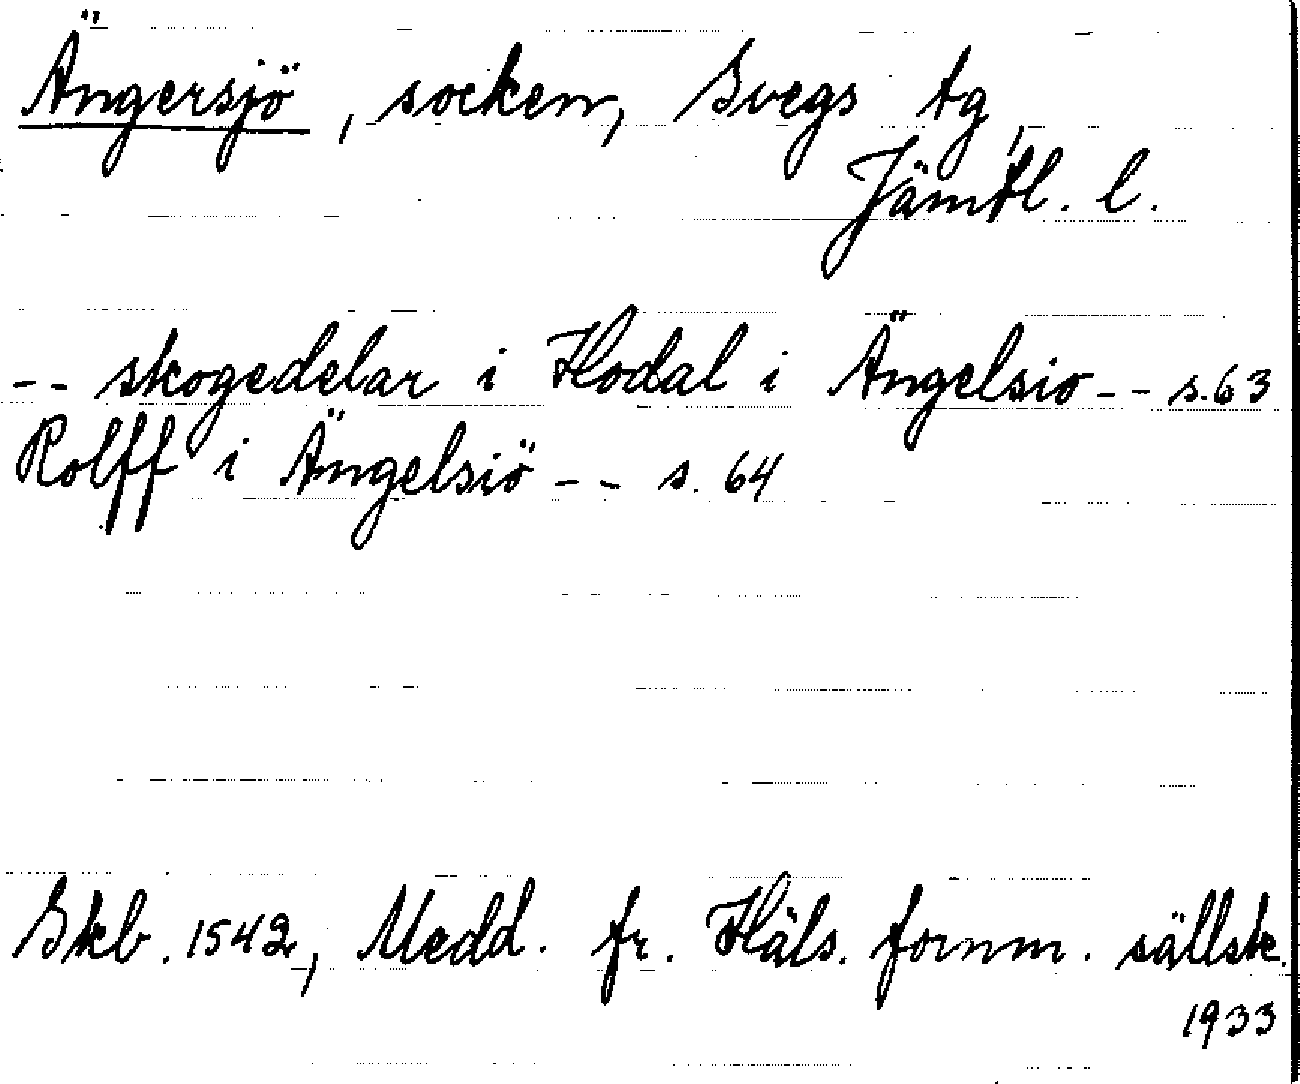 Ängersjö, socken, Svegs tg,
Jämtl. l.
-- skogedelar i Hodal i Ängelsio -- s. 63
Rolff i Ängelsiö -- s. 64
Skb. 1542, Medd. fr. Häls. fornm. sällsk.
1933